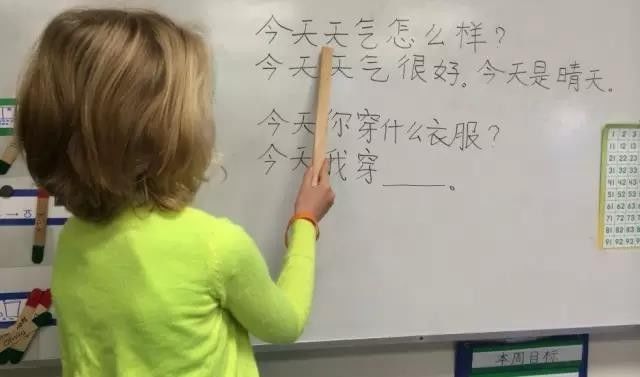 今天天气怎么样？
今天天气很好。今天是晴天。
今天你穿什么衣服？
今天我穿____。
本周目标